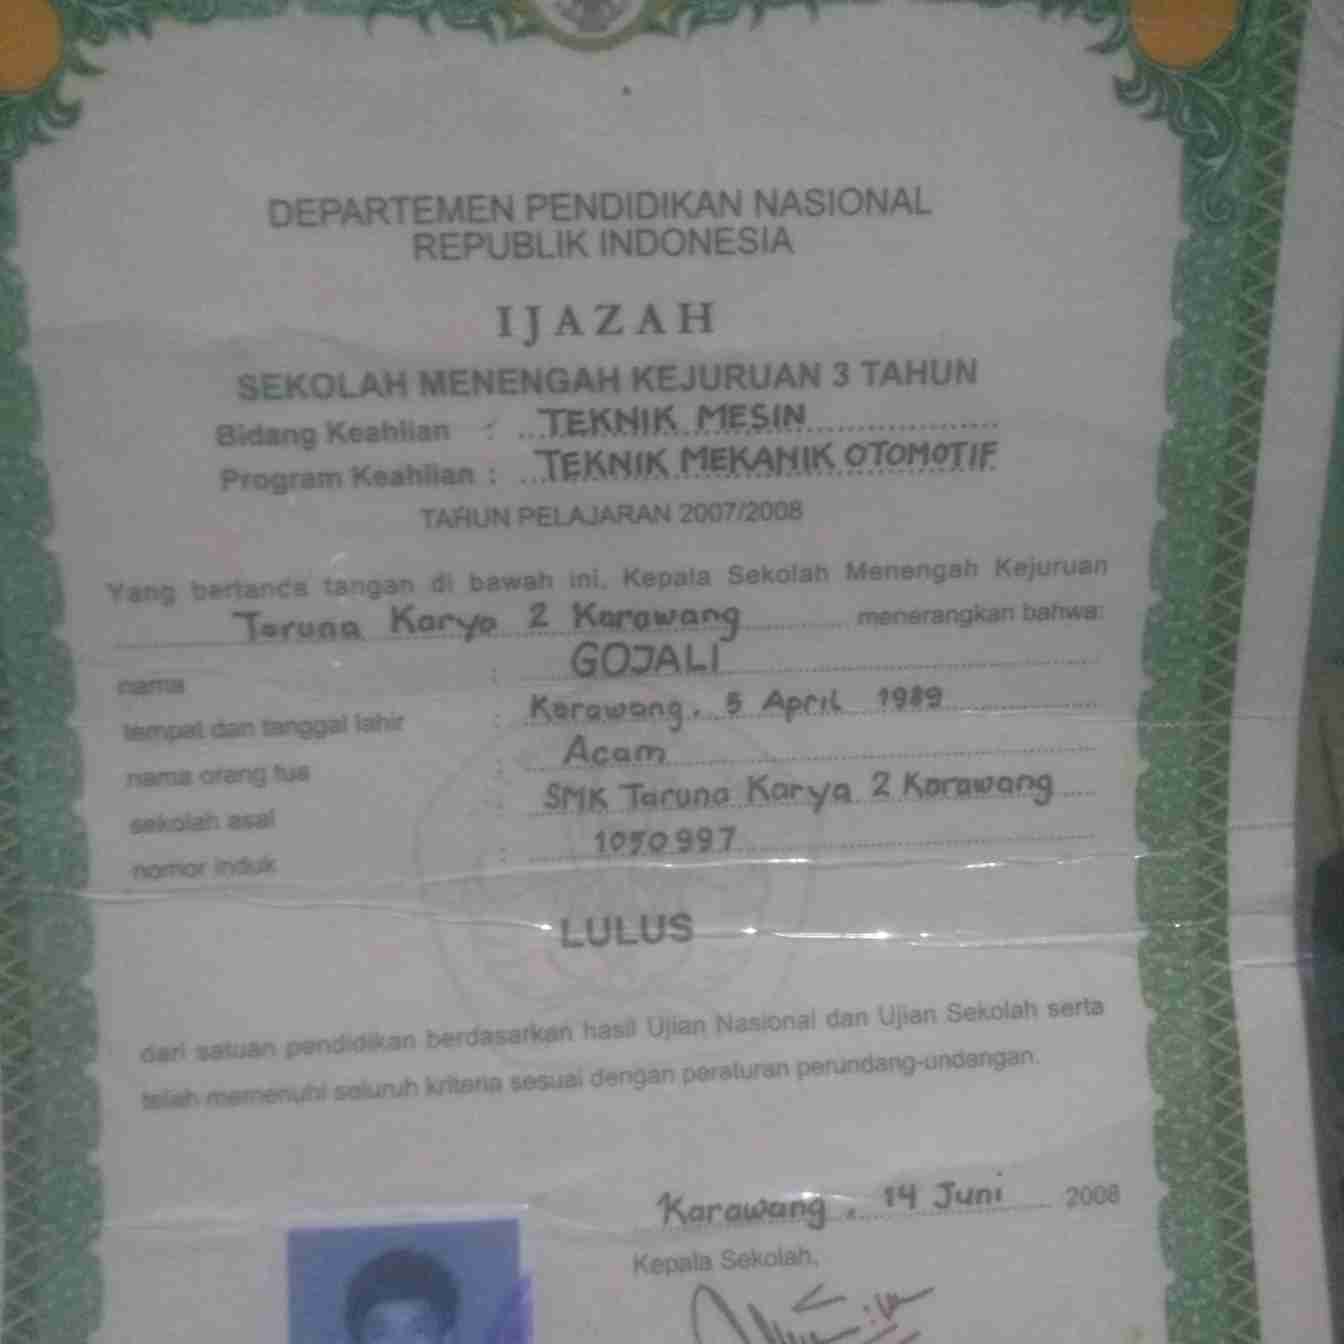 DEPARTEMEN PENDIDIKAN NASIONAL
REPUBLIK INDONESIA
IJAZAH
SEKOLAH MENENGAH KEJURUAN 3 TAHUN
Bidang Keahlian : TEKNIK MESIN
Program Keahlian : TEKNIK MEKANIK OTOMOTIF
TAHUN PELAJARAN 2007/2008
Yang bertanda tangan di bawah ini, Kepala Sekolah Menengah Kejuruan
Taruna Karya 2 Karawang menerangkan bahwa:
nama : GOJALI
tempat dan tanggal lahir : Karawang, 5 April 1989
nama orang tua : Acam
sekolah asal : SMK Taruna Karya 2 Karawang
nomor induk : 1050997
LULUS
dari satuan pendidikan berdasarkan hasil Ujian Nasional dan Ujian Sekolah serta
telah memenuhi seluruh kriteria sesuai dengan peraturan perundang-undangan.
Karawang, 14 Juni 2008
Kepala Sekolah,